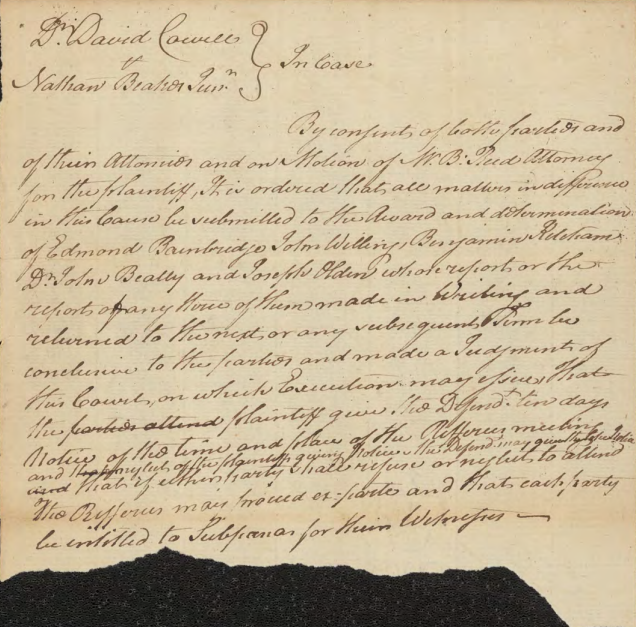 Dr. David Cowell
vs
Nathan Beakes Junr.
In Case
By consent of both parties and
of their Attornies and on Motion of Mr. B: Reed Attorney
for the plaintiff, It is ordered that all matters in difference
in this Cause be submitted to the Award and determination
of Edmond Bainbridge John Willing, Benjamin Ketcham
Dr. John Beatty and Joseph Olden whose report or the
report of any three of them made in Writing and
returned to the next or any subsequent Term be
conclusive to the parties and made a Judgment of
this Court, on which Execution may issue, that
the parties attend plaintiff give the Defendt. ten days
Notice of the time and place of the Refferees meeting
and on neglect of the plaintiffs giving Notice the Defendt. may give the like Notice
and that if either party shall refuse or neglect to attend
the Refferees may proceed ex: parte and that each party
be entitled to Subpenas for their Witnesses